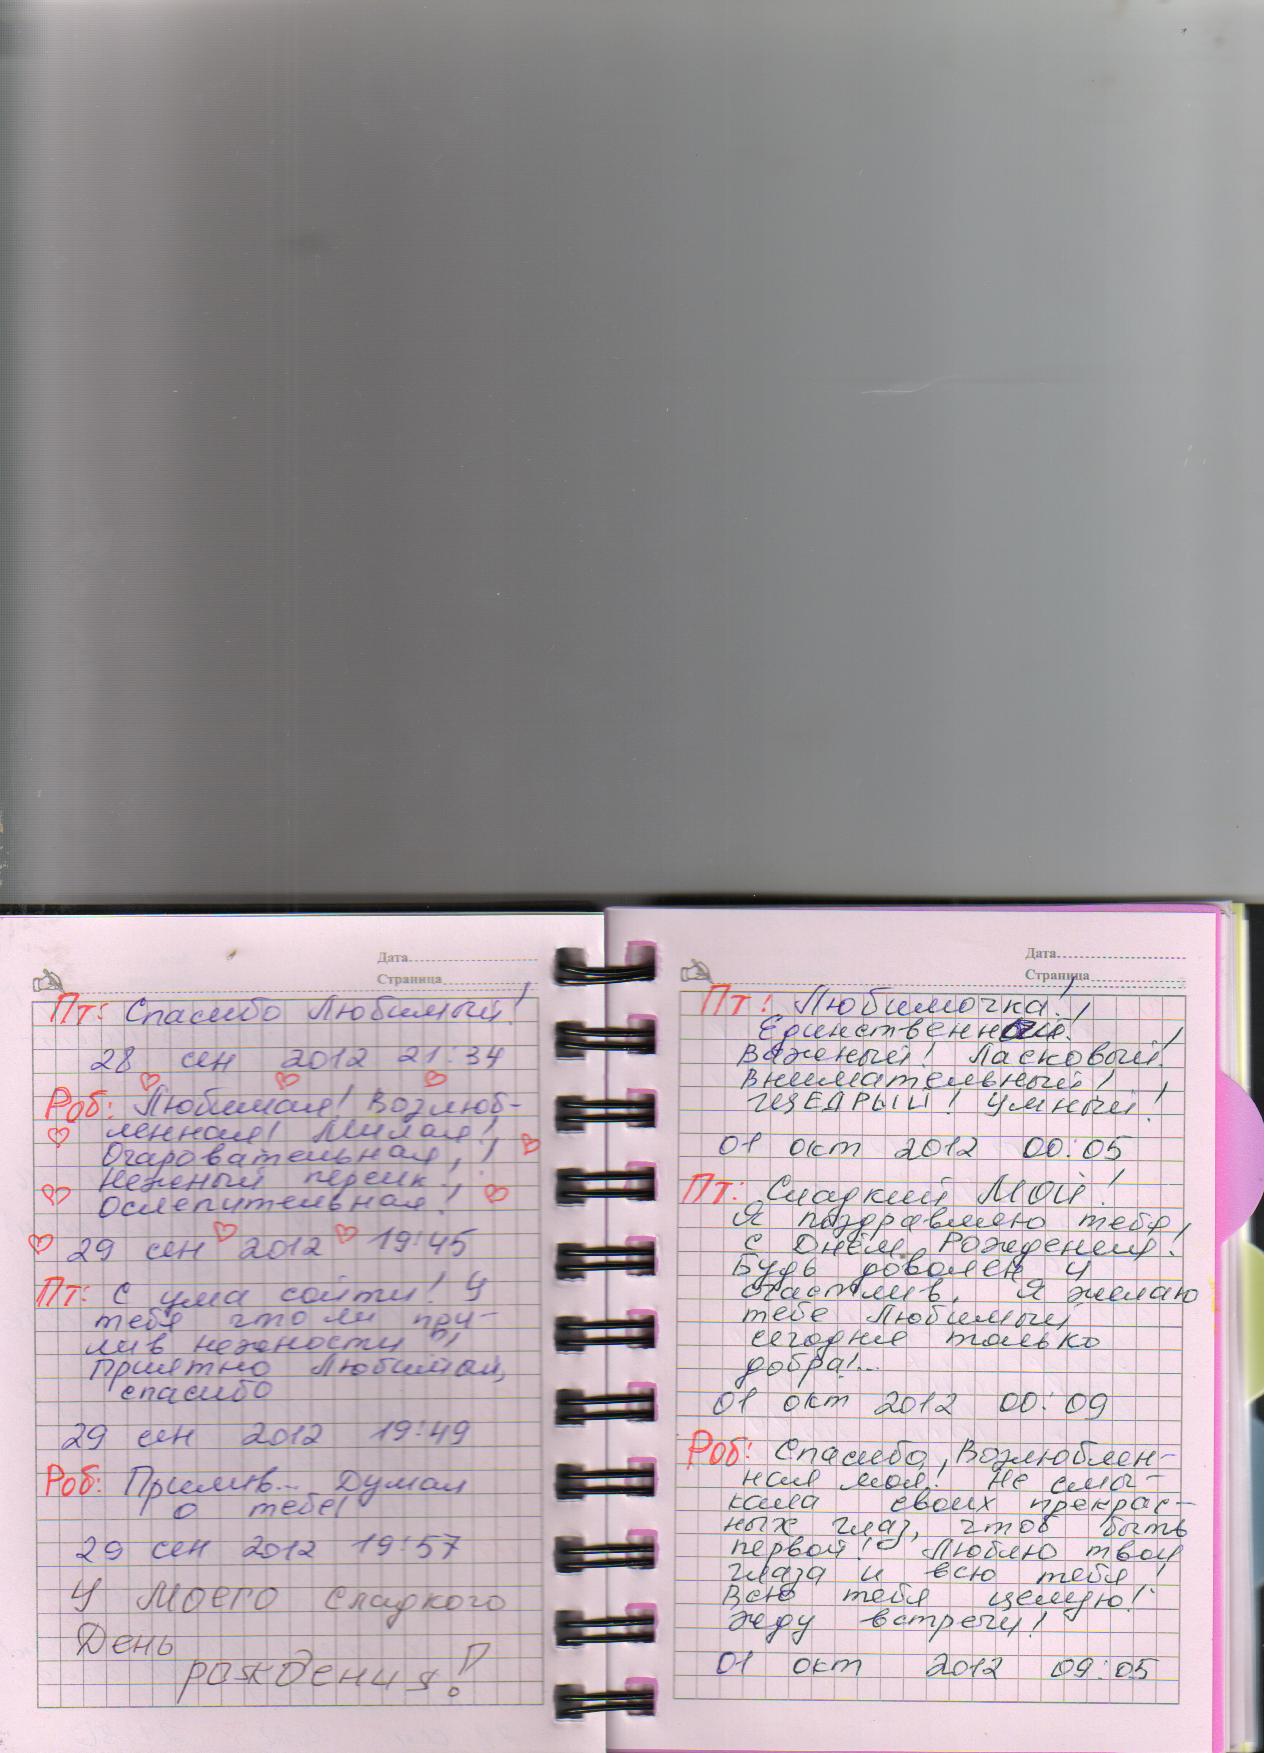 Дата
Страница
Пт: Спасибо Любимый!
28 сен 2012 21:34
Роб: Любимая! Возлюб-
ленная! Милая!
Очаровательная,!
Нежный персик!
Ослепительная!
29 сен 2012 19:45
Пт: С ума сойти! У
тебя что ли при-
лив нежности?!
Приятно Любимый,
спасибо
29 сен 2012 19:49
Роб: Прилив... Думал
о тебе!
29 сен 2012 19:57
У моего сладкого
День
рождения!
Дата
Страница
Пт: Любимочка!
Единственный!
Важеный! Ласковый!
Внимательный!
ЩЕДРЫЙ! Умный!
01 окт 2012 00:05
Пт: Сладкий МОЙ!
Я поздравляю тебя
с Днём Рождения!
Будь доволен и
счастлив, Я желаю
тебе Любимый
сегодня только
добра!...
01 окт 2012 00:09
Роб: Спасибо, Возлюблен-
ная моя! Не смы-
кала своих прекрас-
ных глаз, чтоб быть
первой! Люблю твои
глаза и всю тебя!
Всю тебя целую!
Жду встречи!
01 окт 2012 09:05